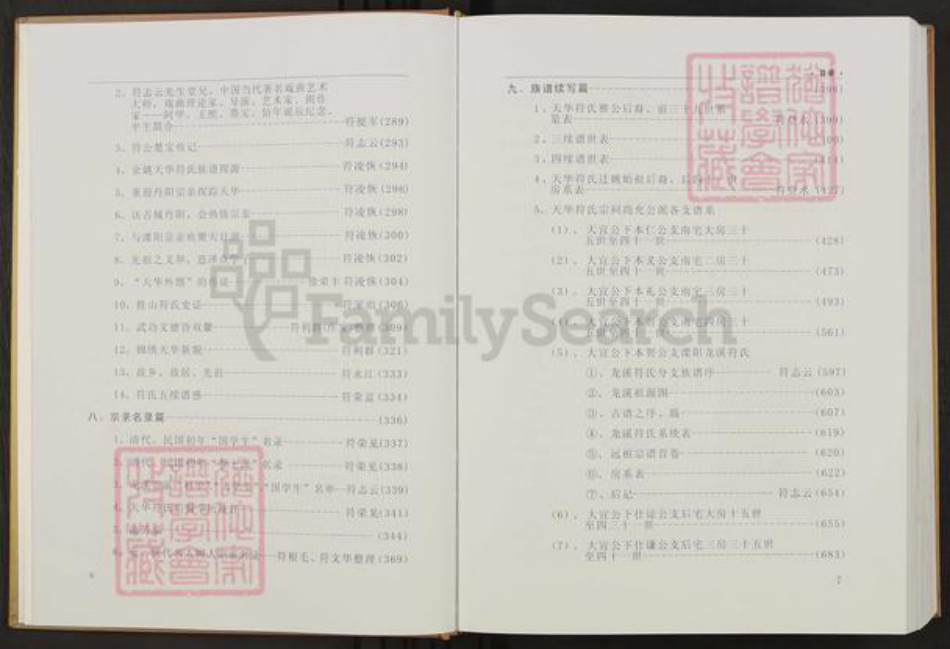 2、符志云先生堂兄，中国当代著名戏曲艺术
大师，戏曲理论家、导演、艺术家、剧作
家——阿甲、王熊、墨宝、佰年诞辰纪念、
平生简介 符挺军(289)
3、符公楚宝传记 符志云(293)
4、金姚天华符氏族谱探源 符凌恢(294)
5、重迎丹阳宗亲探踪天华 符凌恢(296)
6、访古城丹阳、会热情宗亲 符凌恢(298)
7、与溧阳宗亲欢聚天目湖 符凌恢(300)
8、先祖之戈华、恩泽 符凌恢(302)
9、“天华外甥”的传说 徐荣丰 符凌恢(304)
10、胜山符氏史证 (306)
11、武功文德皆双馨 整理(309)
12、锦绣天华新貌 符利群(321)
13、故乡、故居、先祖 符永江(333)
14、符氏五续谱感 符荣富(334)
八、宗亲名录篇 (336)
1、清代、民国初年“国学生”名录 符荣见(337)
名录 符荣见(338)
“国学生”名单 符志云(339)
4、天华符氏 符荣见(341)
5、 (344)
符根毛、符文华整理(369)
6
·目录·
九、族谱续写篇
1、天华符氏雅公后裔、前三十九世系
览表 符登水(399)
2、三续谱世表
3、四续谱世表 (414)
4、天华符氏迁姚始祖后裔、
房系表 符登水(427)
5、天华符氏宗祠尚允公派各支谱系
(1)、大宣公下本仁公支南宅大房三十
五世至四十一世 (428)
(2)、大宣公下本义公支南宅二房三十
五世至四十一世 (473)
(3)、大宣公下本礼公支南宅三房三十
五世至四十一世 (493)
(4)、大宣公下本智公支南宅四房三十
五世至四十一世 (561)
(5)、大宣公下本贤公支溧阳龙溪符氏
①、龙溪符氏分支族谱序 符志云(597)
②、龙溪祖源图 (603)
③、古谱之序、跋 (607)
④、龙溪符氏系统表 (619)
⑤、远祖宗谱首卷 (620)
⑥、房系表 (622)
⑦、后记 符志云(654)
(6)、大宣公下仕谅公支后宅大房十五世
至四三十一世 (655)
(7)、大宣公下仕谦公支后宅三房三十五世
至四十一世 (683)
7
FamilySearch